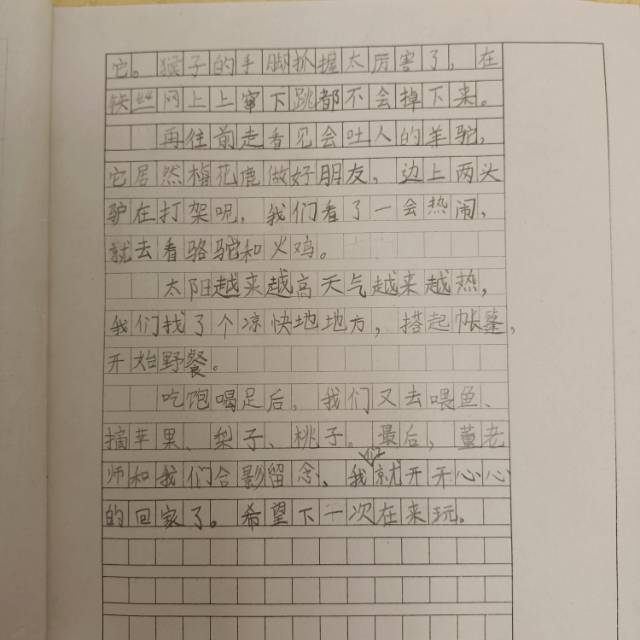 它。猴子的手脚抓握太厉害了，在
铁丝网上上窜下跳都不会掉下来。
再往前走看见会吐人的羊驼，
它居然梅花鹿做好朋友，边上两头
驴在打架呢，我们看了一会热闹，
就去看骆驼和火鸡。
太阳越来越高天气越来越热，
我们找了个凉快地地方，搭起帐篷，
开始野餐。
吃饱喝足后，我们又去喂鱼、
摘苹果、梨子、桃子。最后，董老
师和我们合影留念，我们就开开心心
的回家了。希望下一次在来玩。